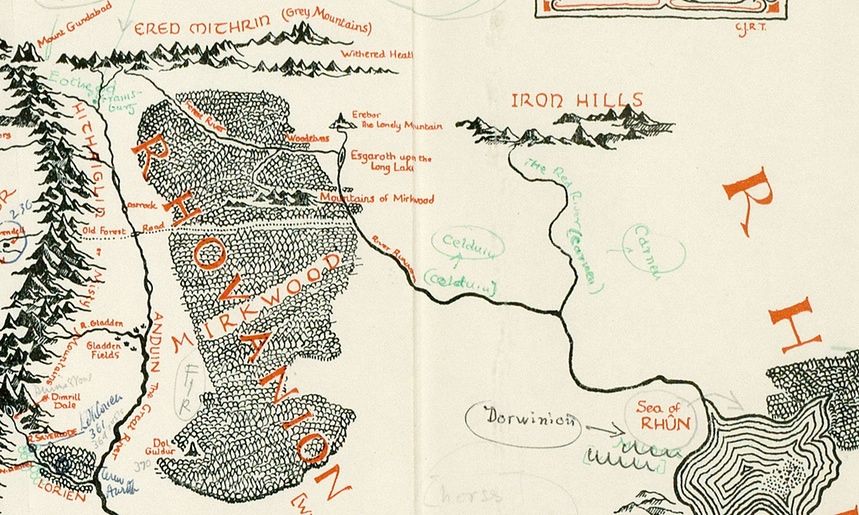 Mount Gundabad
ERED MITHRIN (Grey Mountains)
Withered Heat
C.J.R.T.
IRON HILLS
Forest River
Erebor
The Lonely Mountain
Woodelves
Esgaroth upon the
Long Lake
Mountains of Mirkwood
HITHAIGLIN
or Misty Mountains
Carrock
Old Forest Road
River Running
The Red River (Carnen)
Carnen
Celduin
(Celduin)
RHOVANION
MIRKWOOD
R. Gladden
Gladden
Fields
ANDUIN The Great River
Dimrill
Dale
R. SILVERLODE
361
LORIEN
Dol
Guldur
370
Dorwinion
Sea of
RHÛN
R
H
horse